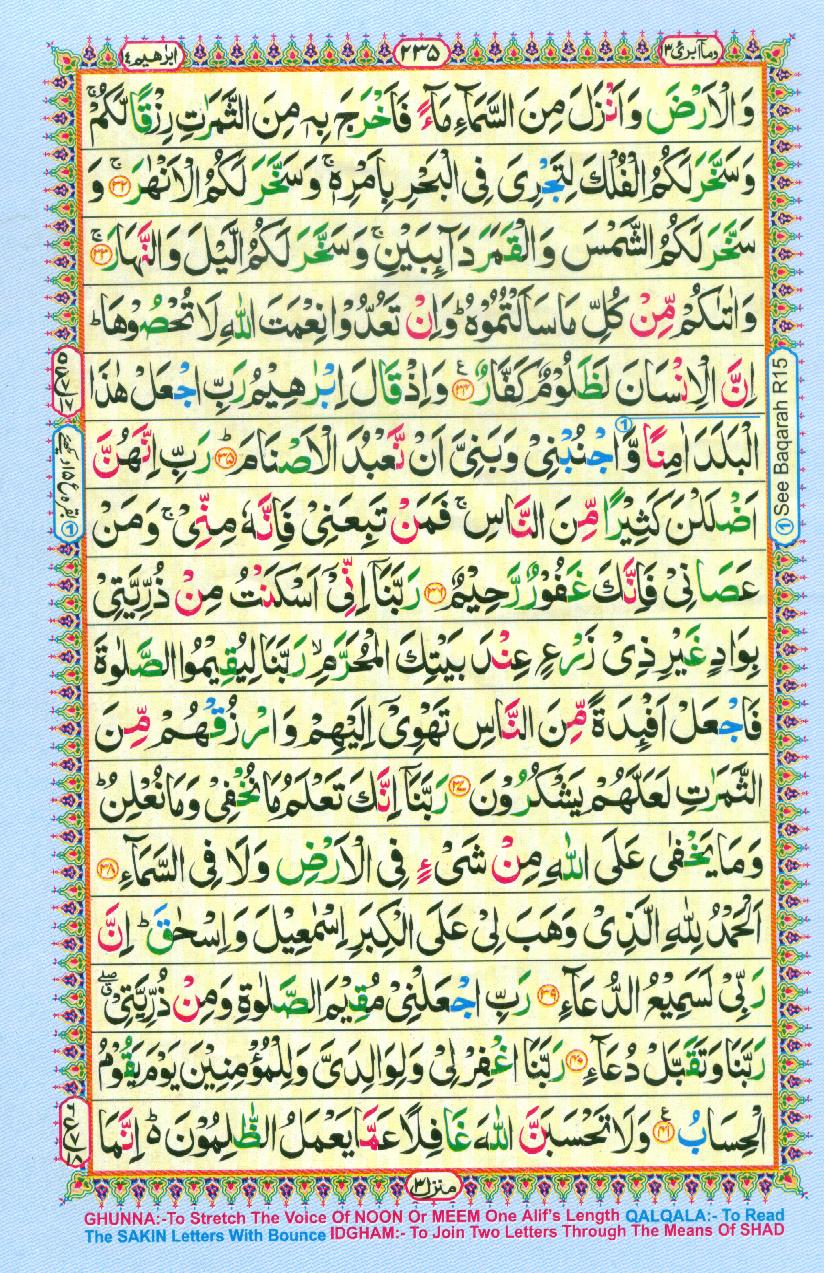 ابرٰهيم ١٤
٢٣٥
ومآ ابرئ ١٣
وَالْاَرْضَ وَاَنْزَلَ مِنَ السَّمَآءِ مَآءً فَاَخْرَجَ بِهٖ مِنَ الثَّمَرٰتِ رِزْقًا لَّكُمْ ۚ
وَسَخَّرَ لَكُمُ الْفُلْكَ لِتَجْرِىَ فِى الْبَحْرِ بِاَمْرِهٖ ۚ وَسَخَّرَ لَكُمُ الْاَنْهٰرَ ۚ ٣٢ وَ
سَخَّرَ لَكُمُ الشَّمْسَ وَالْقَمَرَ دَآئِبَيْنِ ۚ وَسَخَّرَ لَكُمُ الَّيْلَ وَالنَّهَارَ ۚ ٣٣
وَاٰتٰىكُمْ مِّنْ كُلِّ مَا سَاَلْتُمُوْهُ ؕ وَاِنْ تَعُدُّوْا نِعْمَتَ اللّٰهِ لَا تُحْصُوْهَا ؕ
اِنَّ الْاِنْسَانَ لَظَلُوْمٌ كَفَّارٌ ٣٤ ع وَاِذْ قَالَ اِبْرٰهِيْمُ رَبِّ اجْعَلْ هٰذَا
الْبَلَدَ اٰمِنًا وَّاجْنُبْنِىْ وَبَنِىَّ اَنْ نَّعْبُدَ الْاَصْنَامَ ؕ ٣٥ رَبِّ اِنَّهُنَّ
اَضْلَلْنَ كَثِيْرًا مِّنَ النَّاسِ ۚ فَمَنْ تَبِعَنِىْ فَاِنَّهٗ مِنِّىْ ۚ وَمَنْ
عَصَانِىْ فَاِنَّكَ غَفُوْرٌ رَّحِيْمٌ ٣٦ رَبَّنَاۤ اِنِّىْۤ اَسْكَنْتُ مِنْ ذُرِّيَّتِىْ
بِوَادٍ غَيْرِ ذِىْ زَرْعٍ عِنْدَ بَيْتِكَ الْمُحَرَّمِ ۙ رَبَّنَا لِيُقِيْمُوا الصَّلٰوةَ
فَاجْعَلْ اَفْئِدَةً مِّنَ النَّاسِ تَهْوِىْۤ اِلَيْهِمْ وَارْزُقْهُمْ مِّنَ
الثَّمَرٰتِ لَعَلَّهُمْ يَشْكُرُوْنَ ٣٧ رَبَّنَاۤ اِنَّكَ تَعْلَمُ مَا نُخْفِىْ وَمَا نُعْلِنُ ؕ
وَمَا يَخْفٰى عَلَى اللّٰهِ مِنْ شَىْءٍ فِى الْاَرْضِ وَلَا فِى السَّمَآءِ ٣٨
اَلْحَمْدُ لِلّٰهِ الَّذِىْ وَهَبَ لِىْ عَلَى الْكِبَرِ اِسْمٰعِيْلَ وَاِسْحٰقَ ؕ اِنَّ
رَبِّىْ لَسَمِيْعُ الدُّعَآءِ ٣٩ رَبِّ اجْعَلْنِىْ مُقِيْمَ الصَّلٰوةِ وَمِنْ ذُرِّيَّتِىْ ۖ ق
رَبَّنَا وَتَقَبَّلْ دُعَآءِ ٤٠ رَبَّنَا اغْفِرْ لِىْ وَلِوَالِدَىَّ وَلِلْمُؤْمِنِيْنَ يَوْمَ يَقُوْمُ
الْحِسَابُ ٤١ ع وَلَا تَحْسَبَنَّ اللّٰهَ غَافِلًا عَمَّا يَعْمَلُ الظّٰلِمُوْنَ ؕ اِنَّمَا
① See Baqarah R15
منزل ٣
GHUNNA:-To Stretch The Voice Of NOON Or MEEM One Alif's Length QALQALA:- To Read
The SAKIN Letters With Bounce IDGHAM:- To Join Two Letters Through The Means Of SHAD